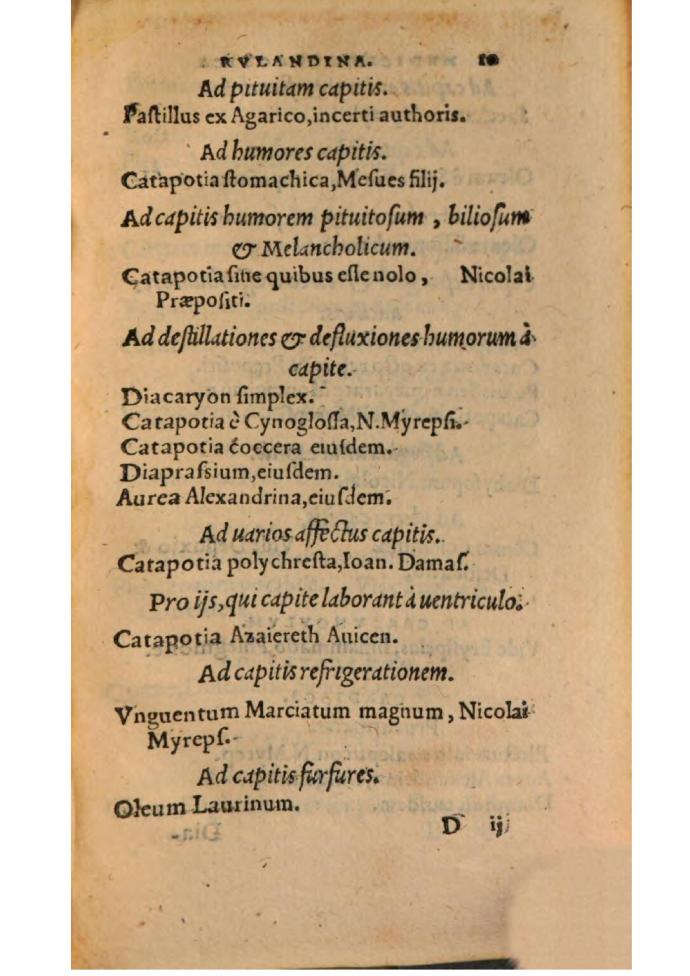 RVLANDINA.
Ad pituitam capitis.
Paſtillus ex Agarico, incerti authoris.
Ad humores capitis.
Catapotia ſtomachica, Meſues filij.
Ad capitis humorem pituitoſum, bilioſum
& Melancholicum.
Catapotia ſine quibus eſſe nolo, Nicolai
Præpoſiti.
Ad deſtillationes & defluxiones humorum à
capite.
Diacaryon ſimplex.
Catapotia è Cynogloſſa, N. Myrepſi.
Catapotia coccera eiuſdem.
Diapraſsium, eiuſdem.
Aurea Alexandrina, eiuſdem.
Ad uarios affectus capitis.
Catapotia polychreſta, Ioan. Damaſ.
Pro ijs, qui capite laborant à uentriculo.
Catapotia Azaiereth Auicen.
Ad capitis refrigerationem.
Vnguentum Marciatum magnum, Nicolai
Myrepſ.
Ad capitis furfures.
Oleum Laurinum.
D ij